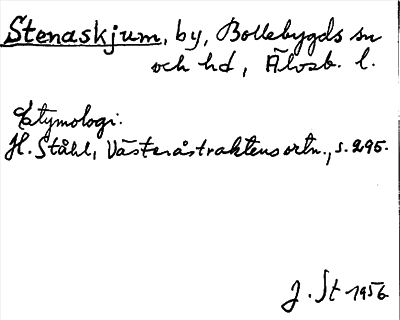 Stenaskjum, by, Bollebygds sn
och hd, Älvsb. l.
Etymologi:
H. Ståhl, Västeråstraktens ortn., s. 295.
J. St 1956